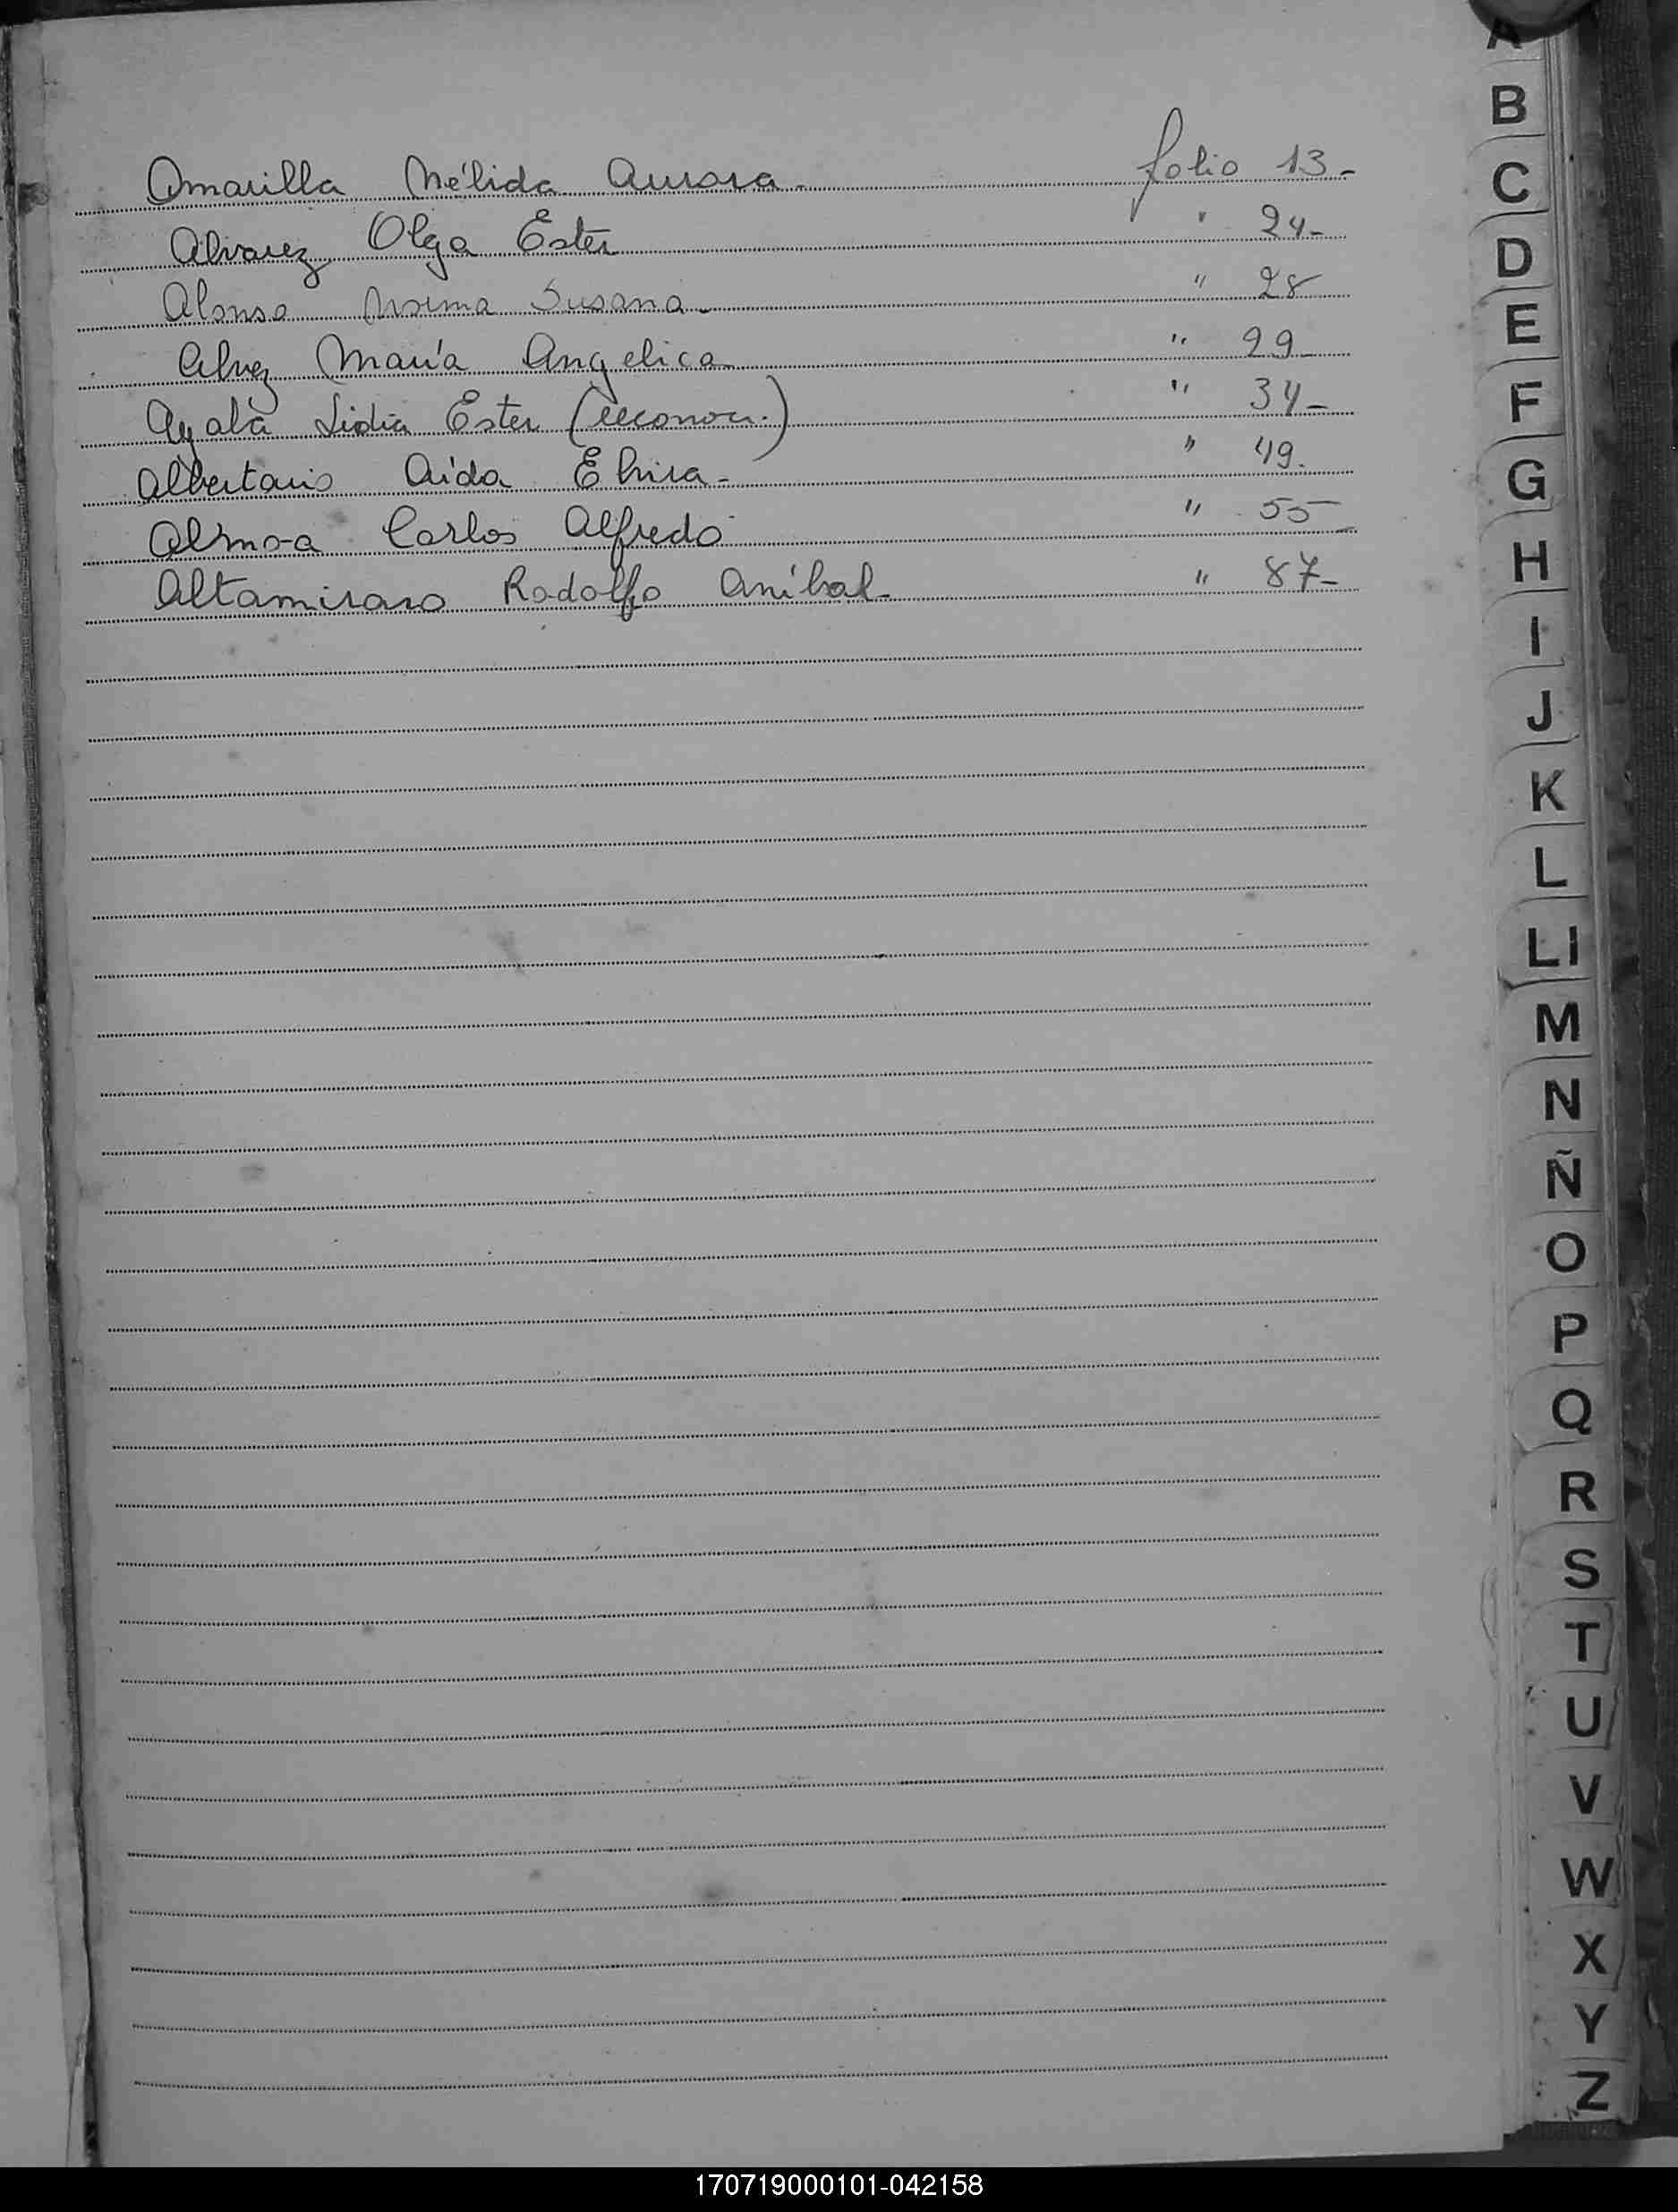 Amarilla Nélida Aurora - folio 13 -
Alvarez Olga Ester " 24 -
Alonso Norma Susana - " 28
Alvez María Angelica - " 29
Ayala Lidia Ester (reconoc.) " 34 -
Albertario Aída Elvira - " 49.
Carlos Alfredo " 55 -
Altamirano Rodolfo Aníbal - " 87 -
A
B
C
D
E
F
G
H
I
J
K
L
Ll
M
N
Ñ
O
P
Q
R
S
T
U
V
W
X
Y
Z
170719000101-042158